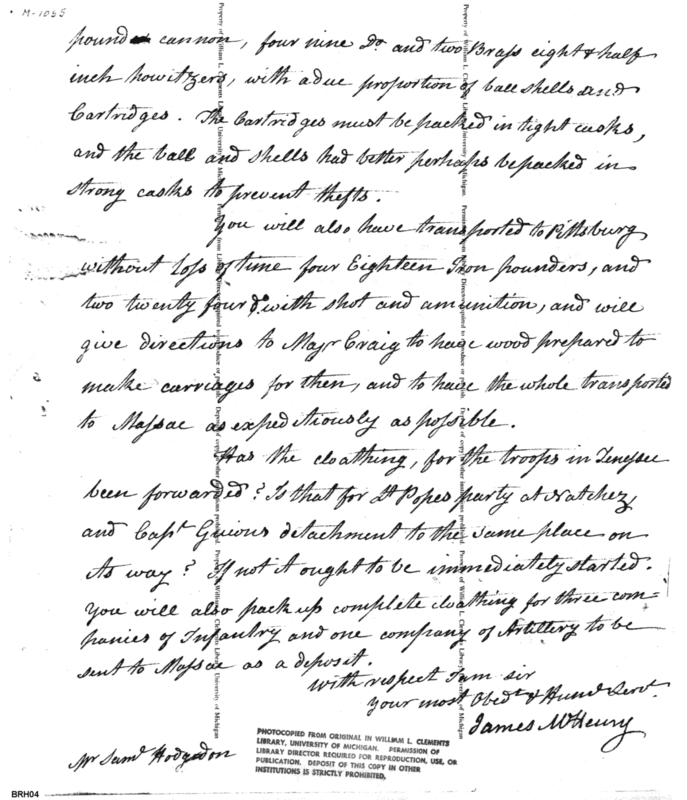 M-1055
pound cannon, four nine Do and two Brass eight & half
inch howitzers, with a due proportion of ball shells and
Cartridges. The Cartridges must be packed in tight casks,
and the ball and shells had better perhaps be packed in
strong casks to prevent thefts.
You will also have transported to Pittsburg
without loss of time four Eighteen Iron pounders, and
two twenty four do with shot and amunition, and will
give directions to Majr Craig to have wood prepared to
make carriages for then, and to have the whole transported
to Massac as expeditiously as possible.
Has the cloathing, for the troops in Tenessee
been forwarded? Is that for Lt Popes party at Natchez
and Capt Guions detachment to the same place on
its way? If not it ought to be immediately started.
You will also pack up complete cloathing for three com-
panies of Infantry and one company of Artillery to be
sent to Massac as a deposit.
With respect I am sir
your most Obedt & Humd Servt.
James McHenry
Mr Saml Hodgdon
PHOTOCOPIED FROM ORIGINAL IN WILLIAM L. CLEMENTS
LIBRARY, UNIVERSITY OF MICHIGAN. PERMISSION OF
LIBRARY DIRECTOR REQUIRED FOR REPRODUCTION, USE, OR
PUBLICATION. DEPOSIT OF THIS COPY IN OTHER
INSTITUTIONS IS STRICTLY PROHIBITED,
BRH04